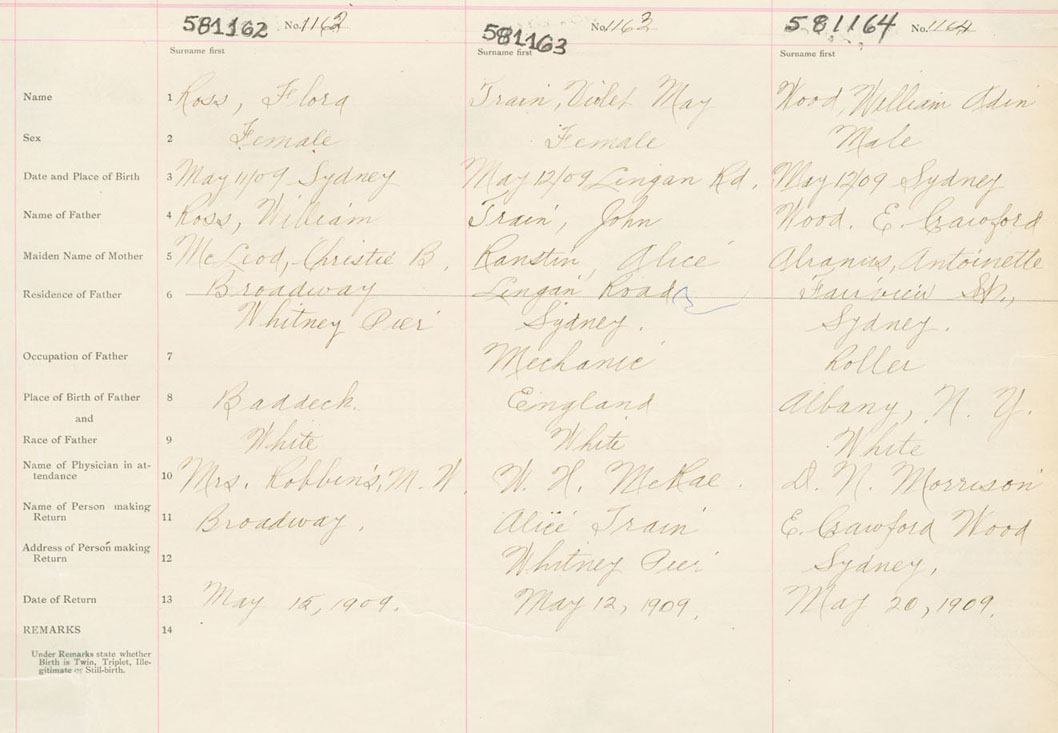 581162 No. 1162 581163 No. 1163 581164 No. 1164
Surname first Surname first Surname first
Name 1 Ross, Flora Train, Violet May Wood, William Odin
Sex 2 Female Female Male
Date and Place of Birth 3 May 11/09 Sydney May 12/09 Lingan Rd. May 12/09 Sydney
Name of Father 4 Ross, William Train, John Wood. E. Crawford
Maiden Name of Mother 5 McLeod, Christie B. Alice Antoinette
Residence of Father 6 Broadway Lingan Road Fairview St.,
Whitney Pier Sydney. Sydney.
Occupation of Father 7 Mechanic Roller
Place of Birth of Father 8 Baddeck. England Albany, N. Y.
and
Race of Father 9 White White White
Name of Physician in at-
tendance 10 Mrs. Robbins, M. W. W. H. McRae. D. N. Morrison
Name of Person making
Return 11 Broadway. Alice Train E. Crawford Wood
Address of Person making
Return 12 Whitney Pier Sydney,
Date of Return 13 May 15, 1909. May 12, 1909. May 20, 1909.
REMARKS 14
Under Remarks state whether
Birth is Twin, Triplet, Ille-
gitimate or Still-birth.